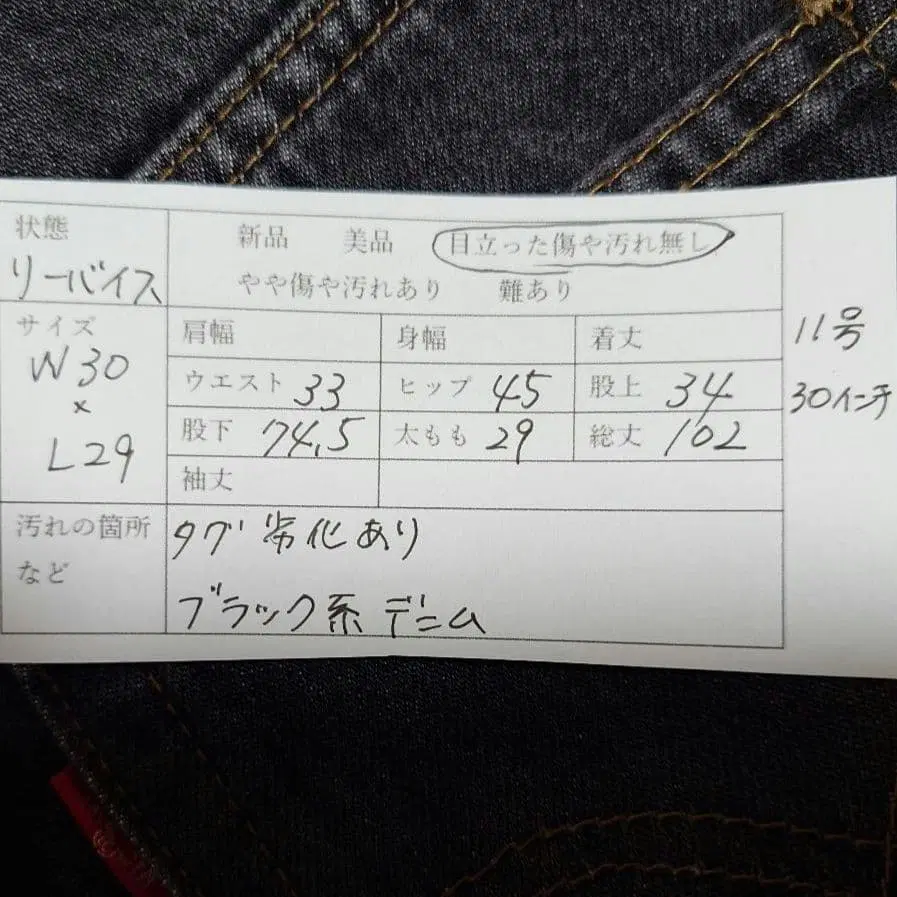 状態
リーバイス
新品 美品 目立った傷や汚れ無し
やや傷や汚れあり 難あり
サイズ
W30
×
L29
肩幅 身幅 着丈
ウエスト 33 ヒップ 45 股上 34
股下 74.5 太もも 29 総丈 102
袖丈
11号
30インチ
汚れの箇所
など
タグ劣化あり
ブラック系デニム